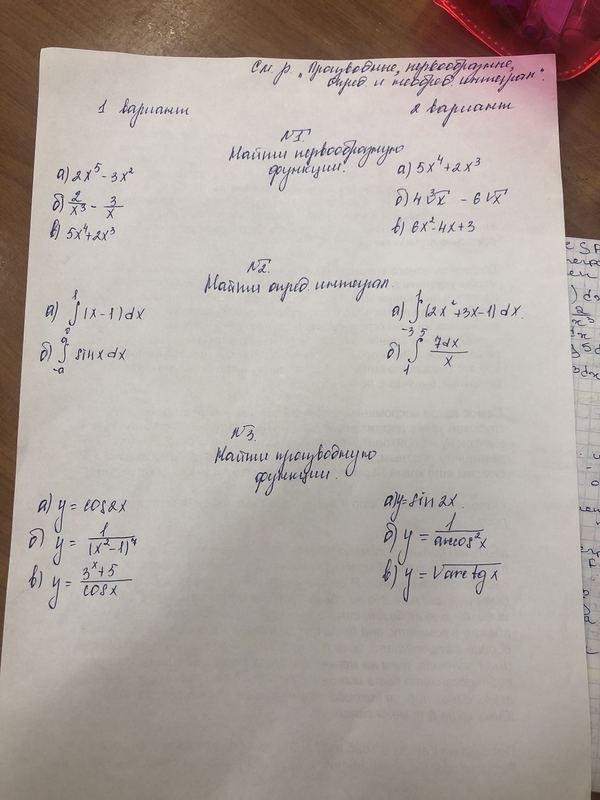 См. р. „Производные, первообразные,
опред. и неопред. интеграл".
1 вариант
2 вариант
№1.
Найти первообразную
функции.
а) 2x⁵ - 3x²
б) 2/x³ - 3/x
в) 5x⁴ + 2x³
а) 5x⁴ + 2x³
б) 4∛x - 6√x
в) 6x² - 4x + 3
№2.
Найти опред. интеграл.
а) ∫₀¹ (x - 1) dx
б) ∫₋ₐᵃ sin x dx
а) ∫₋₃¹ (2x² + 3x - 1) dx.
б) ∫₁⁵ 7dx/x
№3.
Найти производную
функции.
а) y = cos 2x
б) y = 1/(x² - 1)⁷
в) y = (3ˣ + 5)/cos x
а) y = sin 2x.
б) y = 1/arccos² x
в) y = √arctg x